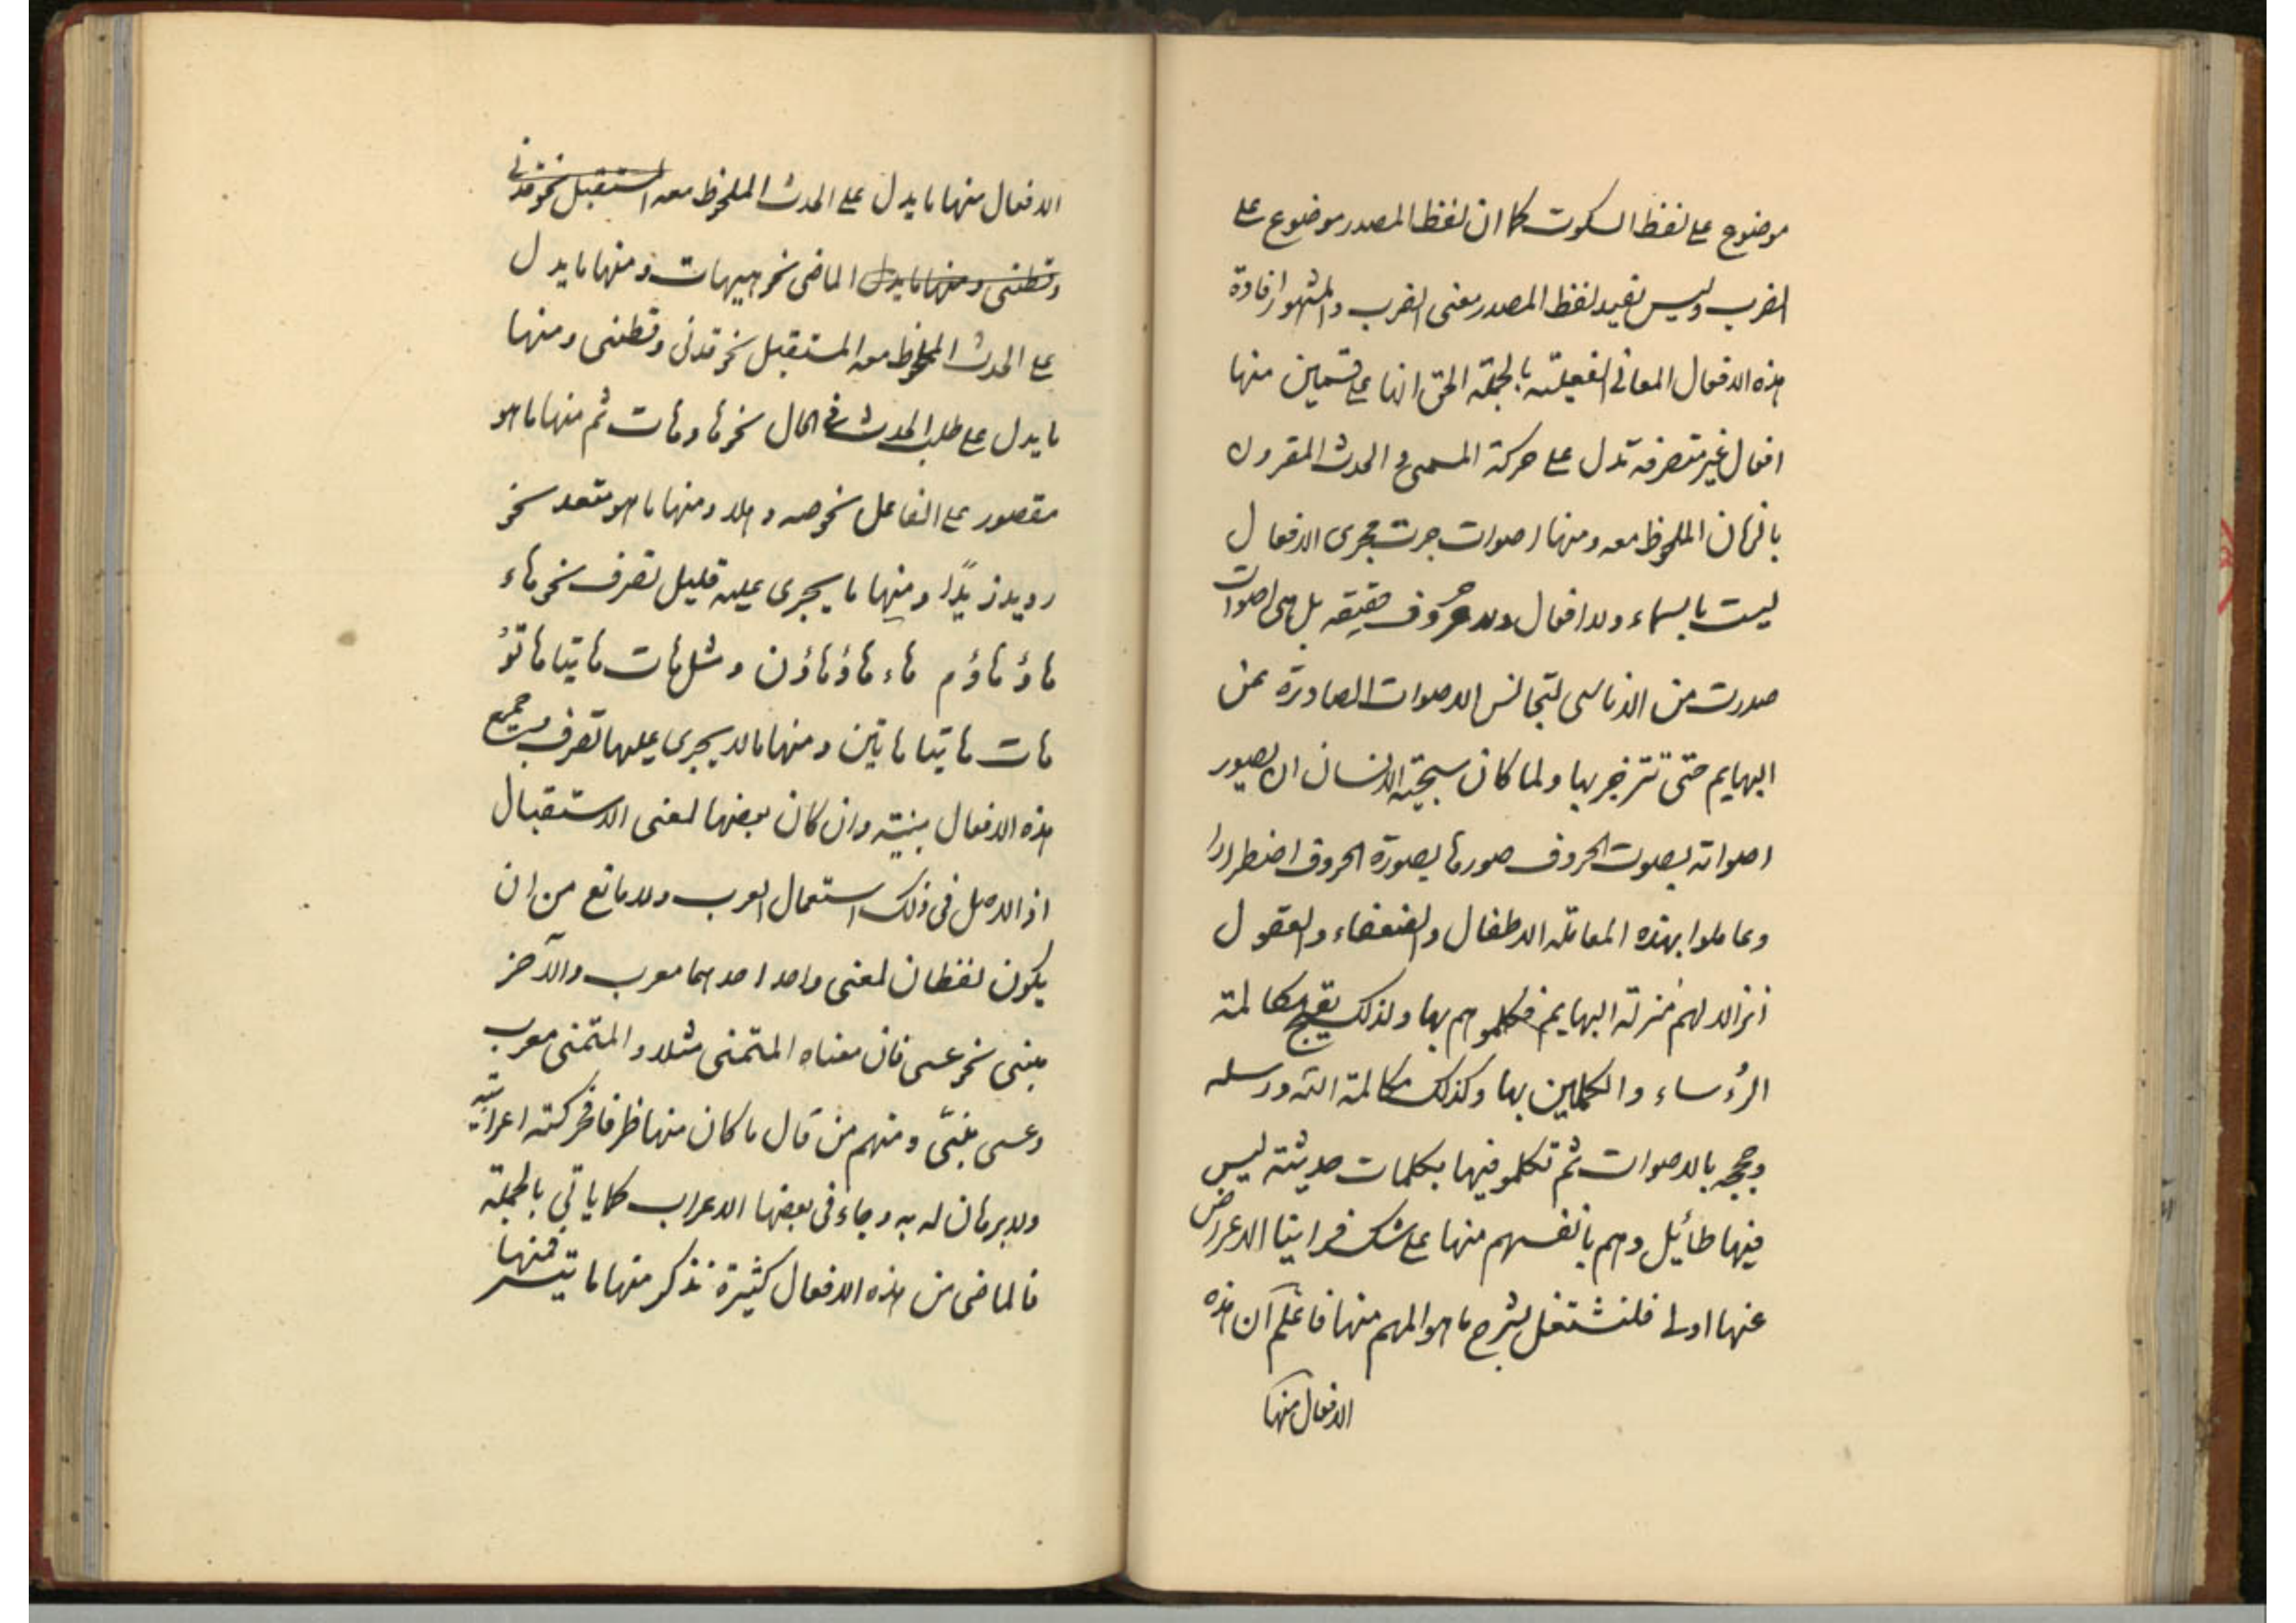 موضوع على لفظ السكوت كما ان لفظ المصدر موضوع على
الضرب وليس يفيد لفظ المصدر معنى الضرب والمشهور افادة
هذه الافعال المعانى الفعلية بالجملة الحق انها على قسمين منها
افعال غير متصرفة تدل على حركة المسمى و الحدث المقرون
بالزمان الملحوظ معه ومنها اصوات جرت مجرى الافعال
ليست باسماء ولا افعال ولا حروف حقيقه بل هى اصوات
صدرت من الاناسى لتجانس الاصوات الصادرة عن
البهايم حتى تنزجر بها ولما كان سجية الانسان ان يصور
اصواته بصوت الحروف صورها بصورة الحروف اضطرارا
وعاملوا بهذه المعاملة الاطفال والضعفاء والعقول
انزالا لهم منزلة البهايم فكلموهم بها ولذلك يقبح مكالمة
الرؤساء والكملين بها وكذلك مكالمة الله ورسله
وحججه بالاصوات ثم تكلمو فيها بكلمات حديثة ليس
فيها طائل وهم بانفسهم منها على شك فراينا الاعراض
عنها اولى فلنشتغل بشرح ما هو المهم منها فاعلم ان هذه
الافعال منها
الافعال منها ما يدل على الحدث الملحوظ معه المستقبل نحو قدنى
وقطنى ومنها ما يدل الماضى نحو هيهات ومنها ما يدل
على الحدث الملحوظ معه المستقبل نحو قدنى وقطنى ومنها
ما يدل على طلب الحدث فى الحال نحو ها وهات ثم منها ما هو
مقصور على الفاعل نحو صه و هلا ومنها ما هو متعد نحو
رويد زيدًا ومنها ما يجرى عليه قليل تصرف نحو هاء
هاؤ هاؤم هاء هاؤ هاؤن ومثل هات هاتيا هاتوُ
هات هاتيا هاتين ومنها ما لا يجرى عليها تصرف وجميع
هذه الافعال مبنية وان كان بعضها لمعنى الاستقبال
اذ الاصل فى ذلك استعمال العرب ولا مانع من ان
يكون لفظان لمعنى واحد احدهما معرب والآخر
مبنى نحو عسى فان معناه المتمنى مثلا و المتمنى معرب
وعسى مبنى ومنهم من قال ما كان منها ظرفا فحركته اعرابية
ولا برهان له به وجاء فى بعضها الاعراب كما ياتي بالجملة
فالماضى من هذه الافعال كثيرة نذكر منها ما تيسر فمنها